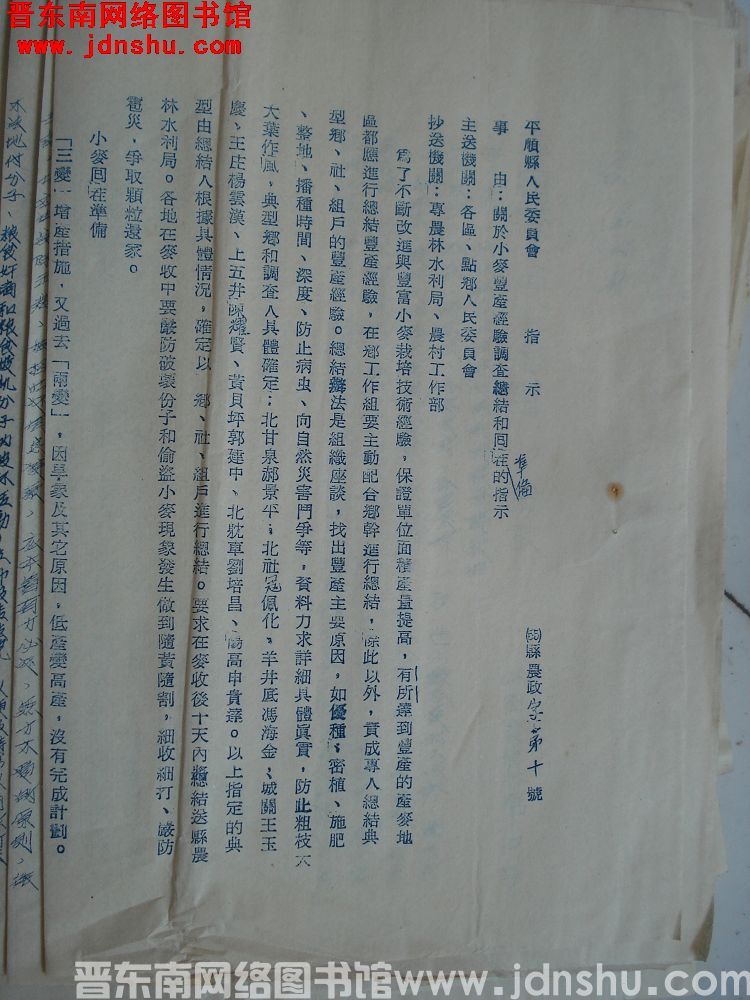 晋东南网络图书馆
www.jdnshu.com
平順縣人民委員會 指示
(55)縣農政字第十號
事由:關於小麥豐產經驗調查總結和囘茬的指示
準備
主送機關:各區、點鄉人民委員會
抄送機關:專農林水利局、農村工作部
爲了不斷改進與豐富小麥栽培技術經驗,保證單位面積產量提高,有所達到豐產的產麥地
區都應進行總結豐產經驗,在鄉工作組要主動配合鄉幹進行總結,除此以外,責成專人總結典
型鄉、社、組戶的豐產經驗。總結辦法是組織座談,找出豐產主要原因,如優種、密植、施肥
、整地、播種時間、深度、防止病虫、向自然災害鬥爭等,資料力求詳細具體眞實,防止粗枝大
大葉作風,典型鄉和調查人具體確定;北甘泉郝景平;北社冠佩化、羊井底馮海金、城關王玉
慶、王庄楊雲漢、上五井陳耀賢、黃貝坪郭建中、北耽車劉培昌、陽高申貴達。以上指定的典
型由總結人根據具體情况,確定以 鄉、社、組戶進行總結。要求在麥收後十天內將總結送縣農
林水利局。各地在麥收中要嚴防破壞份子和偷盜小麥現象發生做到隨黃隨割,細收細打、嚴防
雹災,爭取顆粒還家。
小麥囘茬準備
「三變」增產措施,又過去「兩變」,因學家及其它原因,低產變高產,沒有完成計劃。
晋东南网络图书馆www.jdnshu.com